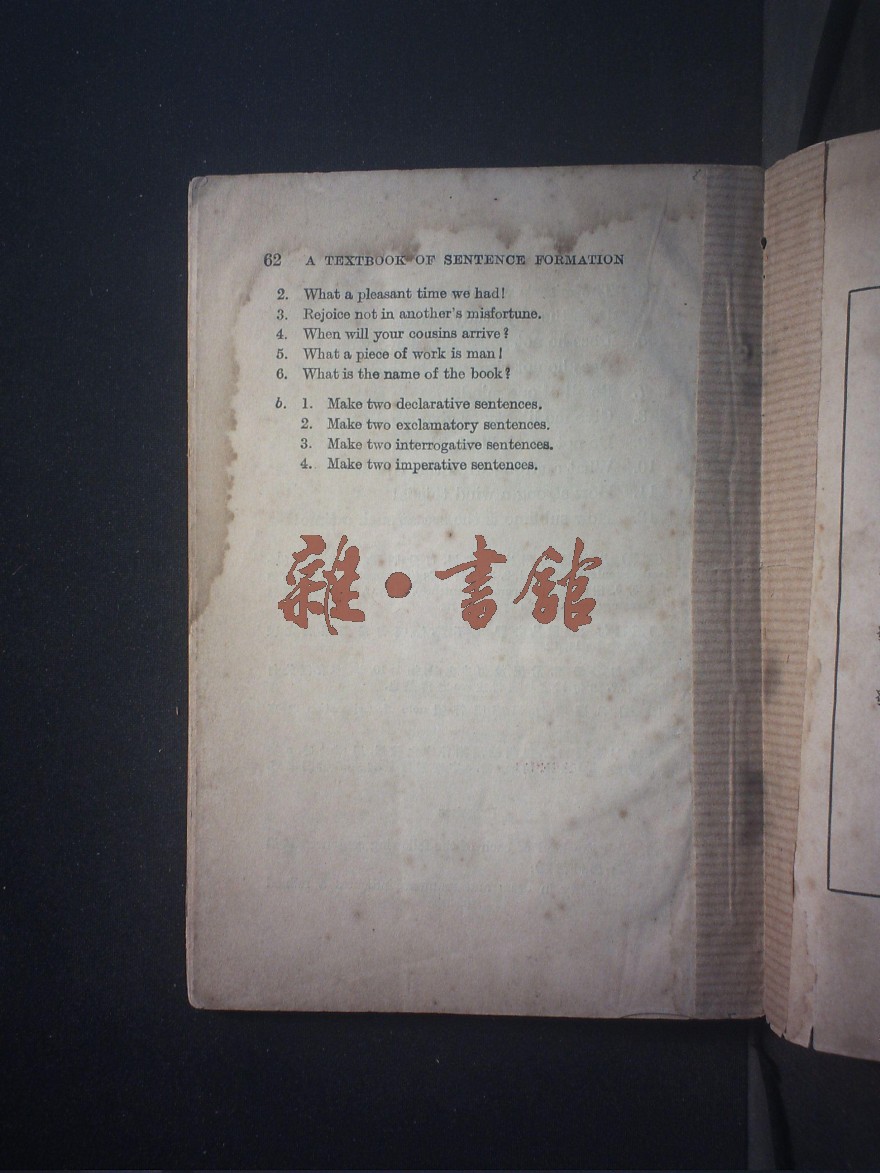 62 A TEXTBOOK OF SENTENCE FORMATION
2. What a pleasant time we had!
3. Rejoice not in another's misfortune.
4. When will your cousins arrive?
5. What a piece of work is man!
6. What is the name of the book?
b. 1. Make two declarative sentences.
2. Make two exclamatory sentences.
3. Make two interrogative sentences.
4. Make two imperative sentences.
雜•書館